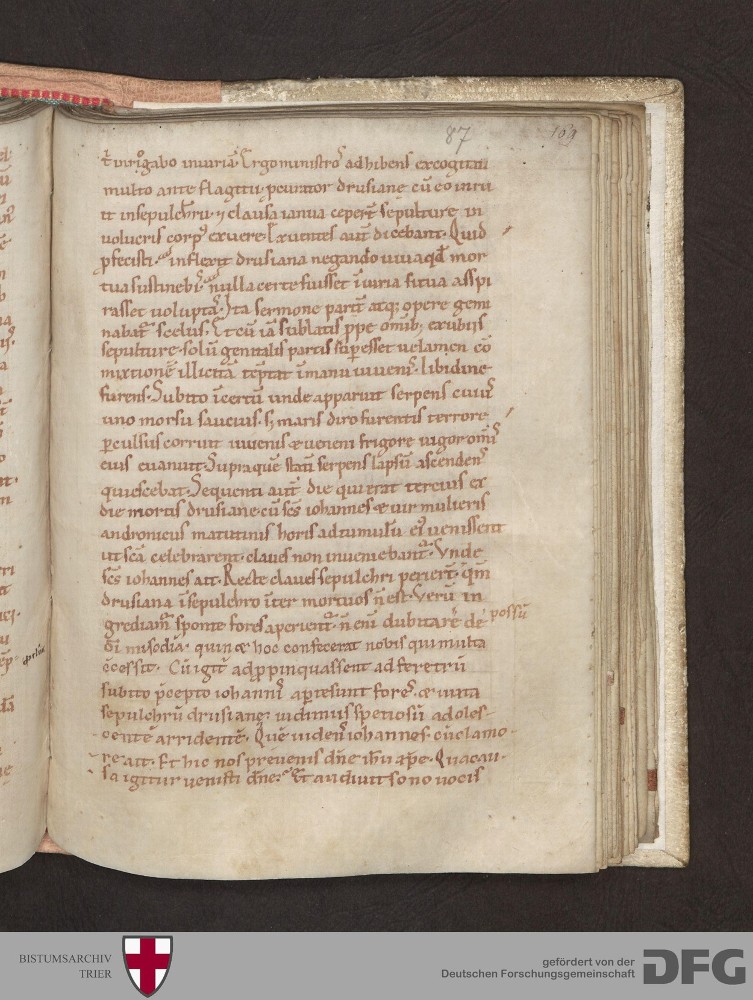 87
109
multo ante flagitii, pcurator drusiane cū eo intra
it in sepulchrū, ⁊ clausa ianua ceper̄ sepulture in
volucris corpꝰ exuere. Exuentes aut̄ dicebant. Quid
ꝓfecisti. inflexit drusiana negando viva qd̄ mor
tua sustinebit. nulla certe fuisset iniuria si tua aspi
rasset voluptas. Ita sermone parit̄ atqꝫ opere gemi
nabat̄ scelus. Et cū iā sublatis ꝓpe om̄ibꝫ exuviis
sepulture solū genitalis partis supesset velamen co
mixtionē illicitā
furens. Subito īcertū unde apparuit serpens cuiꝰ
uno morsu saucius. sꝫ maris diro furentis terrore
ꝑculsus corruit iuvenis & veneni frigore vigor omīs
eius evanuit. Supra quē statī serpens lapsū ascendens
quiescebat. Sequenti aut̄ die qui erat tercius ex
die mortis drusiane. cū scs̄ iohannes & vir mulieris
andronicus matutinis horis ad tumulū eiꝰ venissent
ut scā celebrarent. claves non inveniebant̄. Unde
scs̄ iohannes ait. Recte claves sepulchri perier̄t. qm̄
drusiana ī sepulchro īter mortuos n̄ est. Verū in
grediam̄ sponte fores aperient̄. n̄ eni dubitare de possū
dī misc̄dia. quin & hoc confecerat nobis qui multa
ɔcessit. Cū igit̄ adꝓpinquassent ad feretrū
subito p̄cepto iohannis apte sunt fores. & iuxta
sepulchrū drusiane vidimus spetiosū adoles-
centē arridentē. Quē videns iohannes. exclamo-
re ait. Et hic nos prevenis dn̄e ih̄u xp̄e. Qua cau-
sa igitur venisti dn̄e. Et audivit sono vocis
BISTUMSARCHIV
TRIER
gefördert von der
Deutschen Forschungsgemeinschaft
DFG